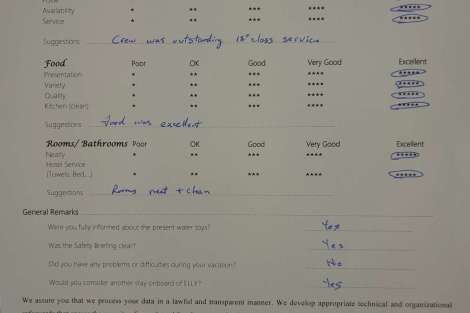 Availability * ** *** **** *****
Service * ** *** **** *****
Suggestions Crew was outstanding 1st class service
Food Poor OK Good Very Good Excellent
Presentation * ** *** **** *****
Variety * ** *** **** *****
Quality * ** *** **** *****
Kitchen (clean) * ** *** **** *****
Suggestions food was excellent
Rooms/ Bathrooms Poor OK Good Very Good Excellent
Neatly * ** *** **** *****
Hotel Service
(Towels, Bed,..) * ** *** **** *****
Suggestions Rooms neat + clean
General Remarks
Were you fully informed about the present water toys? Yes
Was the Safety Briefing clear? Yes
Did you have any problems or difficulties during your vacation? No
Would you consider another stay onboard of ELLY? Yes
We assure you that we process your data in a lawful and transparent manner. We develop appropriate technical and organizational